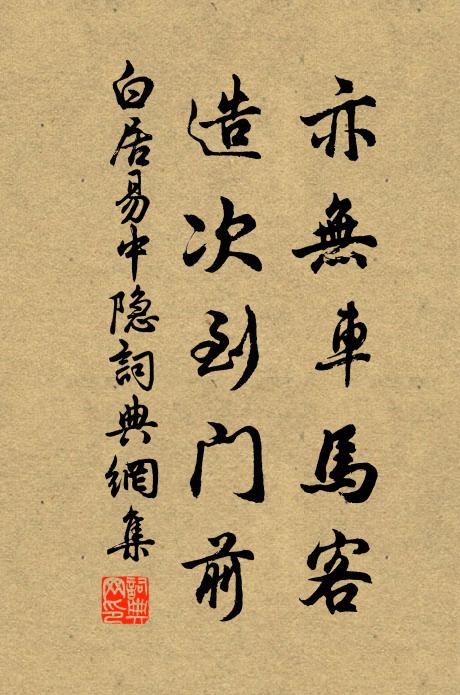 亦無車馬客
造次到门前
白居易中隐詞典網集
詞典网印